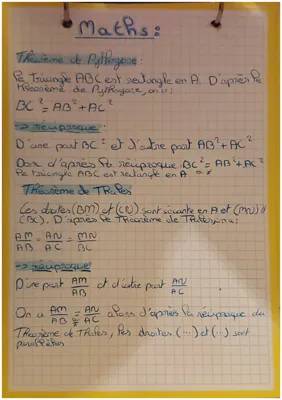 Maths :
Théorème de Pythagore :
Le Triangle ABC est rectangle en A. D'après le
théorème de Pythagore, on a :
BC² = AB² + AC²
→ réciproque :
D'une part BC² et d'autre part AB² + AC²
Donc d'après la réciproque BC² = AB² + AC²
le triangle ABC est rectangle en A
Théorème de Thales
Les droites (BM) et (CN) sont sécante en A et (MN) //
(BC). D'après le Théorème de Thalès on a :
AM/AB = AN/AC = MN/BC
→ réciproque
D'une part AM/AB et d'autre part AN/AC
On a AM/AB = AN/AC alors d'après la réciproque du
Théorème de Thales, les droites (...) et (...) sont
parallèles